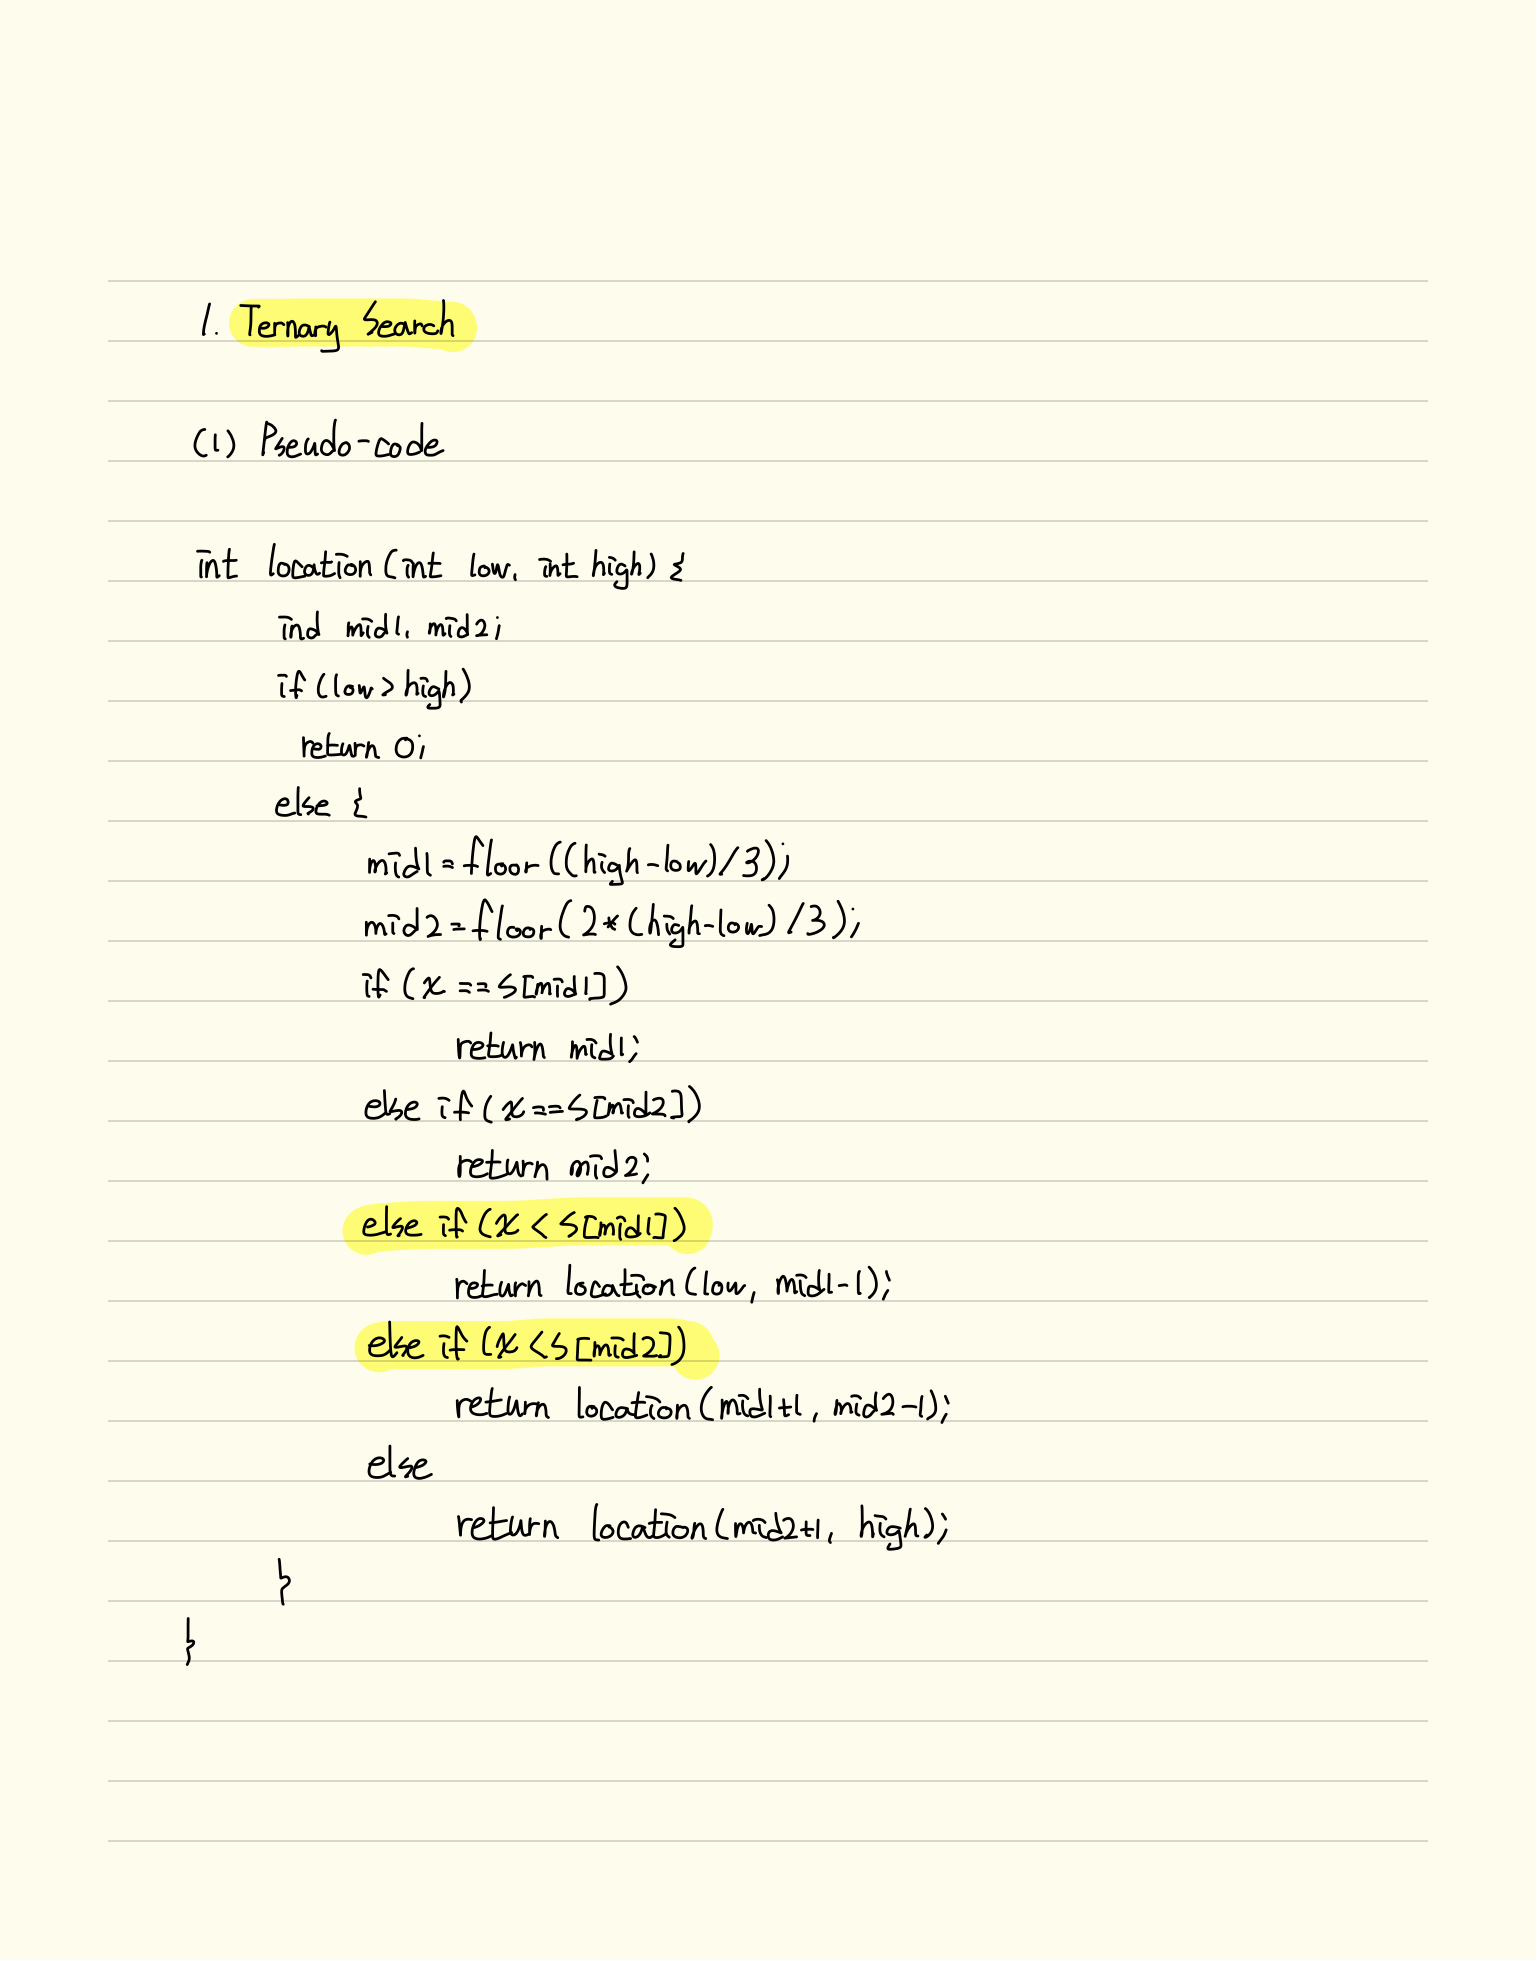 1. Ternary Search
(1) Pseudo-code
int location(int low, int high) {
ind mid1, mid2;
if (low > high)
return 0;
else {
mid1 = floor((high-low)/3);
mid2 = floor(2*(high-low)/3);
if (x == S[mid1])
return mid1;
else if (x == S[mid2])
return mid2;
else if (x < S[mid1])
return location(low, mid1-1);
else if (x < S[mid2])
return location(mid1+1, mid2-1);
else
return location(mid2+1, high);
}
}